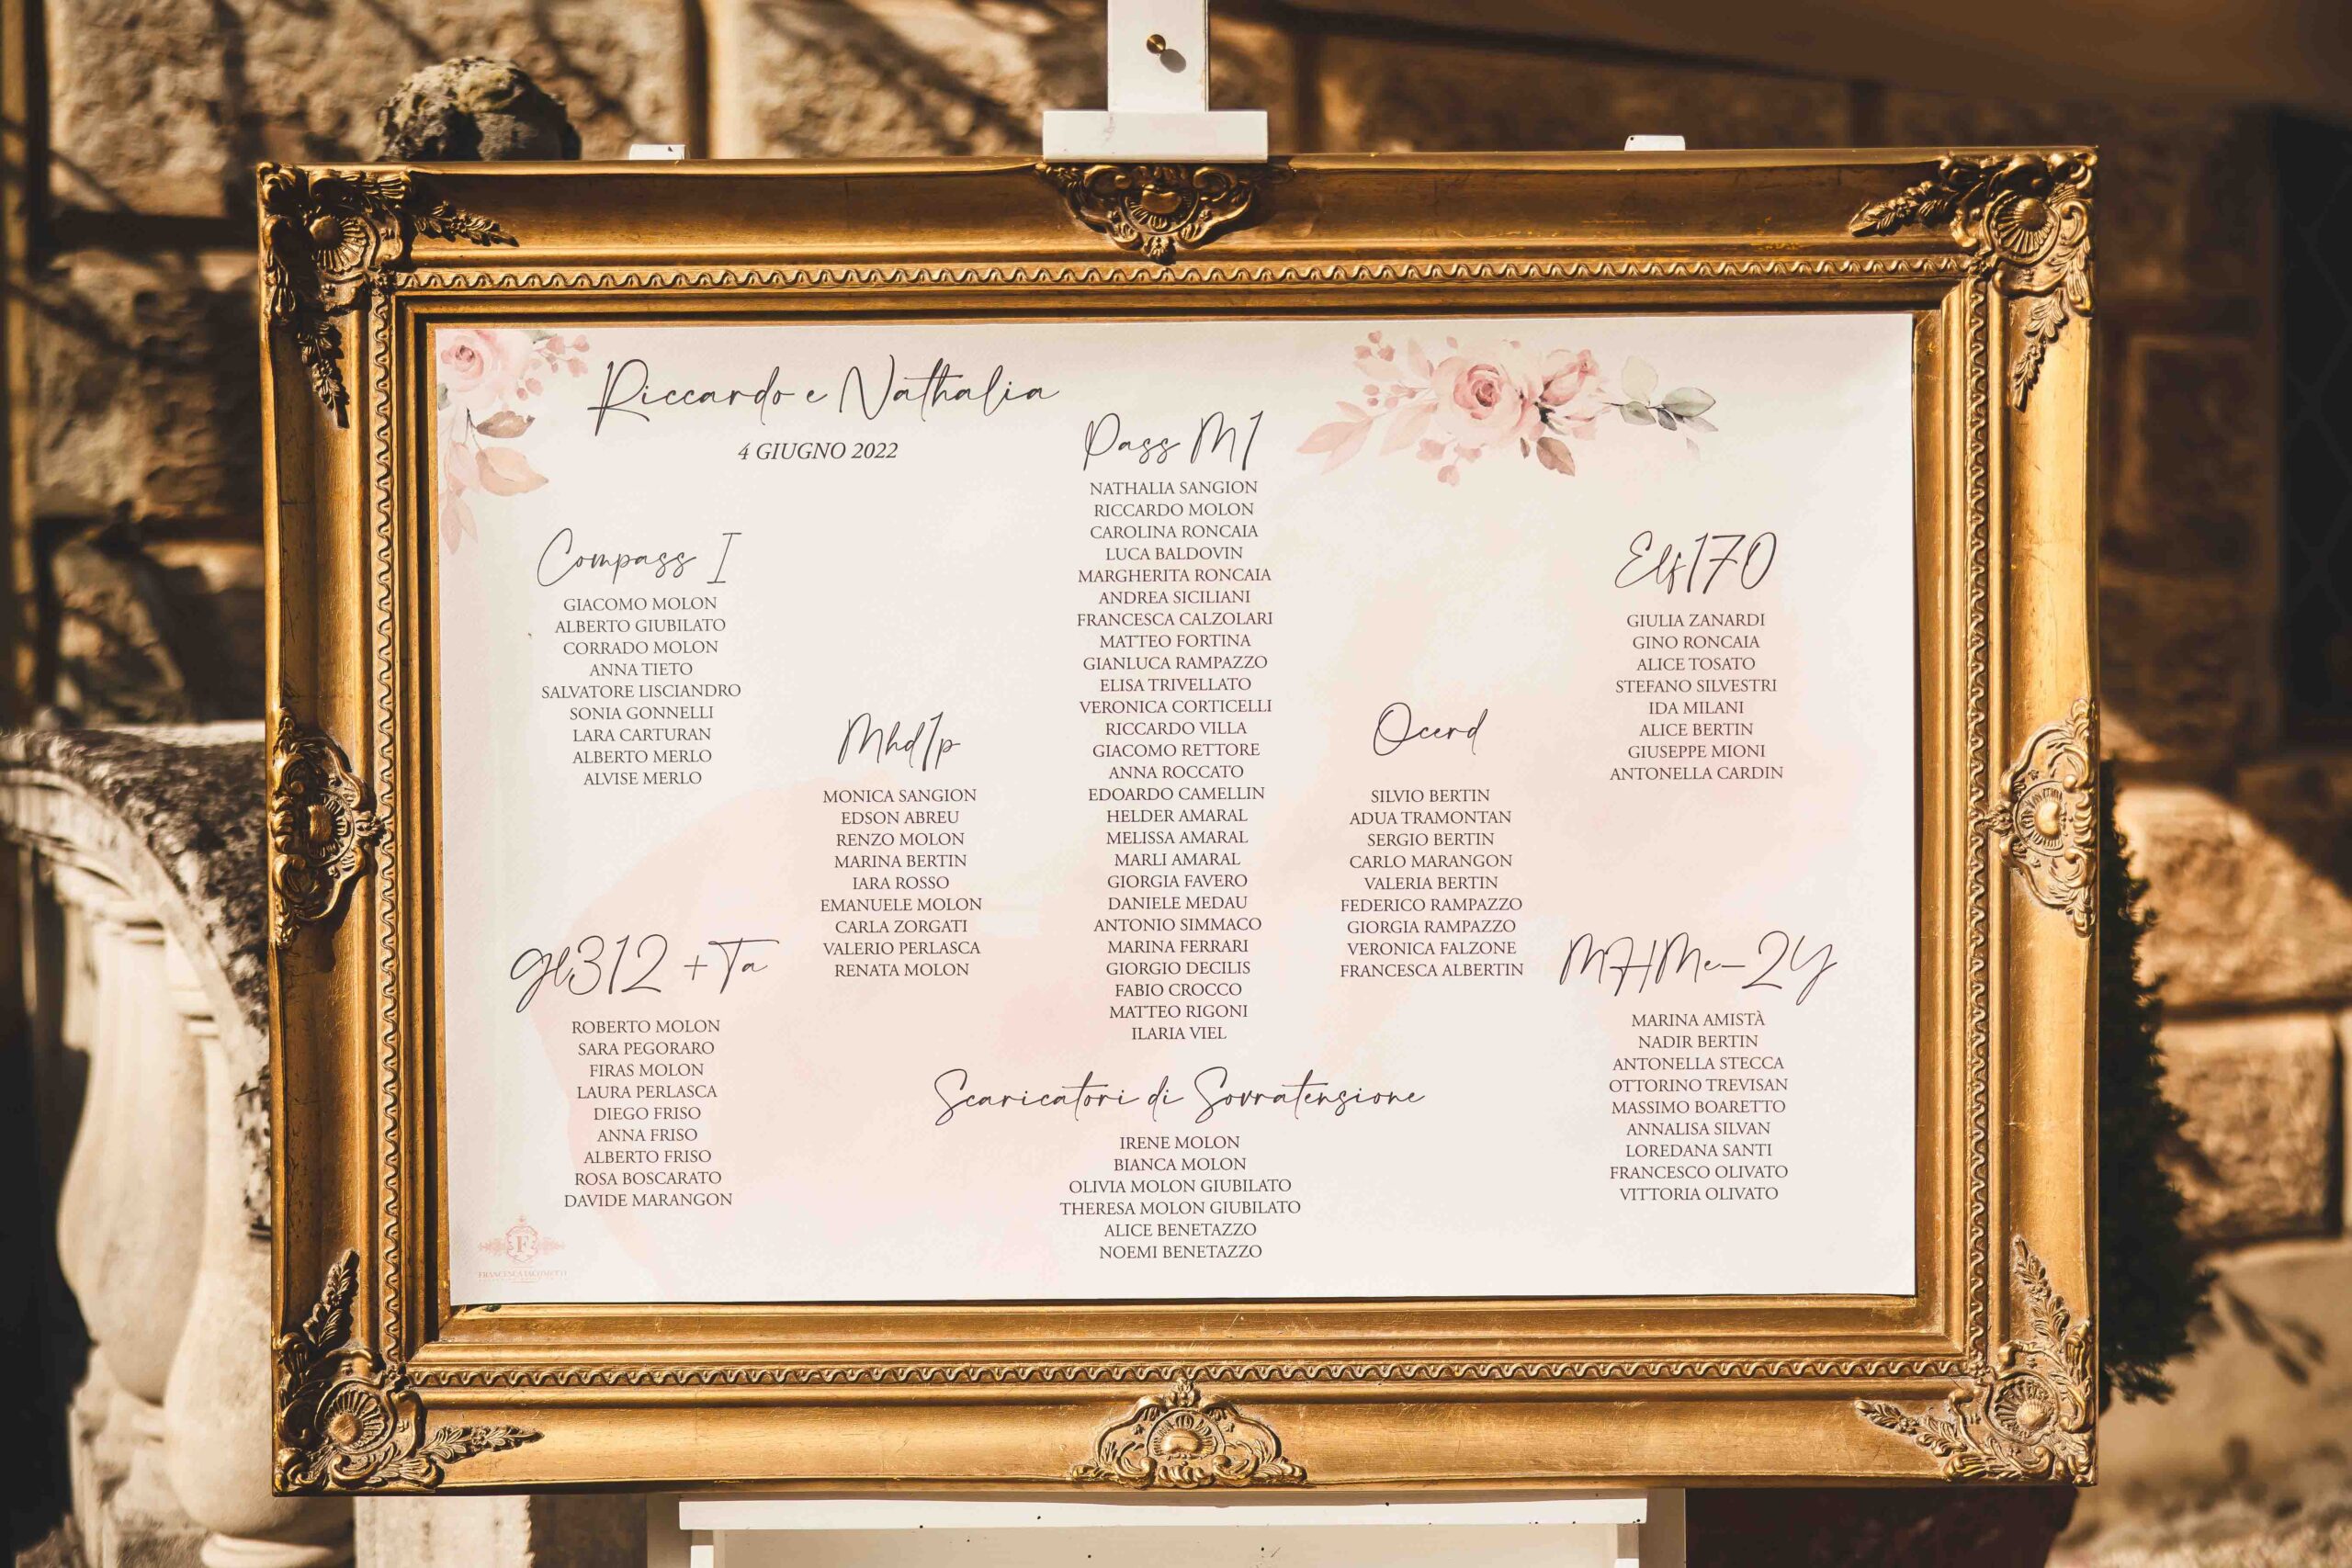 Riccardo e Nathalia
4 GIUGNO 2022
Compass I
GIACOMO MOLON
ALBERTO GIUBILATO
CORRADO MOLON
ANNA TIETO
SALVATORE LISCIANDRO
SONIA GONNELLI
LARA CARTURAN
ALBERTO MERLO
ALVISE MERLO
gl312 + Ta
ROBERTO MOLON
SARA PEGORARO
FIRAS MOLON
LAURA PERLASCA
DIEGO FRISO
ANNA FRISO
ALBERTO FRISO
ROSA BOSCARATO
DAVIDE MARANGON
Mhd1p
MONICA SANGION
EDSON ABREU
RENZO MOLON
MARINA BERTIN
IARA ROSSO
EMANUELE MOLON
CARLA ZORGATI
VALERIO PERLASCA
RENATA MOLON
Pass M1
NATHALIA SANGION
RICCARDO MOLON
CAROLINA RONCAIA
LUCA BALDOVIN
MARGHERITA RONCAIA
ANDREA SICILIANI
FRANCESCA CALZOLARI
MATTEO FORTINA
GIANLUCA RAMPAZZO
ELISA TRIVELLATO
VERONICA CORTICELLI
RICCARDO VILLA
GIACOMO RETTORE
ANNA ROCCATO
EDOARDO CAMELLIN
HELDER AMARAL
MELISSA AMARAL
MARLI AMARAL
GIORGIA FAVERO
DANIELE MEDAU
ANTONIO SIMMACO
MARINA FERRARI
GIORGIO DECILIS
FABIO CROCCO
MATTEO RIGONI
ILARIA VIEL
Scaricatori di Sovratensione
IRENE MOLON
BIANCA MOLON
OLIVIA MOLON GIUBILATO
THERESA MOLON GIUBILATO
ALICE BENETAZZO
NOEMI BENETAZZO
Ocerd
SILVIO BERTIN
ADUA TRAMONTAN
SERGIO BERTIN
CARLO MARANGON
VALERIA BERTIN
FEDERICO RAMPAZZO
GIORGIA RAMPAZZO
VERONICA FALZONE
FRANCESCA ALBERTIN
Elf170
GIULIA ZANARDI
GINO RONCAIA
ALICE TOSATO
STEFANO SILVESTRI
IDA MILANI
ALICE BERTIN
GIUSEPPE MIONI
ANTONELLA CARDIN
MHMe-2Y
MARINA AMISTÀ
NADIR BERTIN
ANTONELLA STECCA
OTTORINO TREVISAN
MASSIMO BOARETTO
ANNALISA SILVAN
LOREDANA SANTI
FRANCESCO OLIVATO
VITTORIA OLIVATO
F